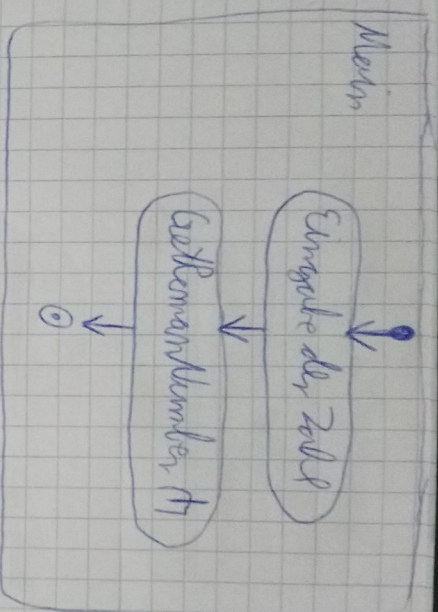 Main
Eingabe der Zahl
GetRomanNumber